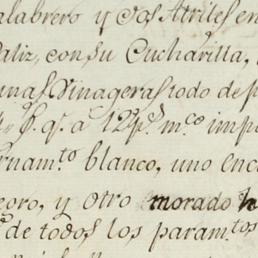 alabrero y dos Atriles en
aliz, con su Cucharilla,
unas Vinageras todo de p
q.e a 12 p.s m.co imp
rnam.to blanco, uno enc
egro, y otro morado
de todos los param.tos